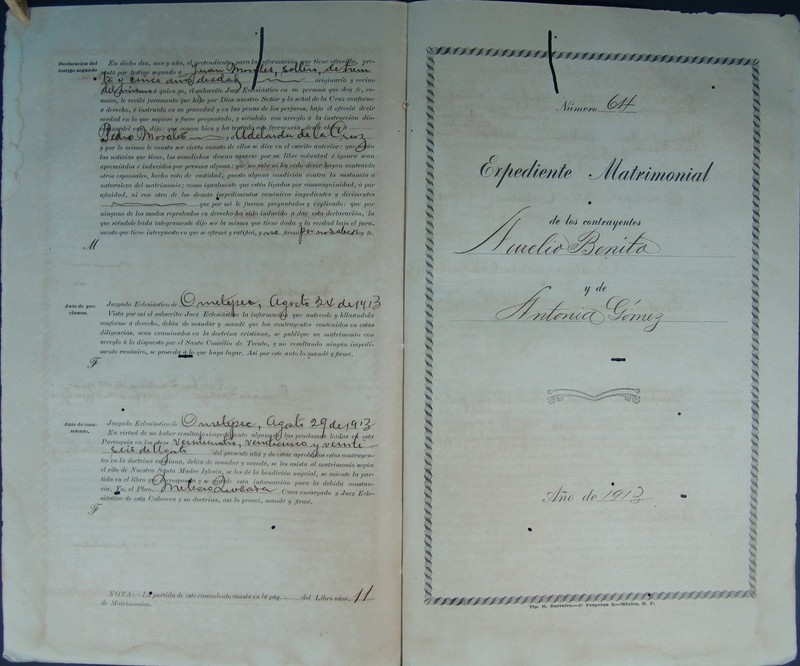 Declaración del testigo segundo
En dicho día, mes y año, el pretendiente para la información que tiene ofrecida, pre-
sentó por testigo segundo á Juan Morales, soltero, de trein
ta y cinco años de edad originario y vecino
á quien yo, el subscrito Juez Eclesiástico en su persona que doy fe, co-
nozco, le recibí juramento que hizo por Dios nuestro Señor y la señal de la Cruz conforme
á derecho, é instruido en su gravedad y en las penas de los perjuros, bajo él ofreció decir
verdad en lo que supiere y fuere preguntado, y siéndolo con arreglo á la instrucción dio-
dijo: que conoce bien y ha tratado con frecuencia
Pedro Morales y a Adelaida de la Cruz
y por lo mismo le consta ser cierto cuanto de ellos se dice en el escrito anterior; que según
las noticias que tiene, los susodichos desean casarse por su libre voluntad é ignora sean
apremiados ó inducidos por persona alguna; que no sabe ni ha oído decir hayan contraído
otros esponsales, hecho voto de castidad, puesto alguna condición contra la sustancia ó
naturaleza del matrimonio; como igualmente que estén ligados por consanguinidad, ó por
afinidad, ni con otro de los demás impedimentos canónicos impedientes y dirimentes
que por mí le fueron preguntados y explicado: que por
ninguno de los modos reprobados en derecho ha sido inducido á dar esta declaración, la
que siéndole leída íntegramente dijo ser la misma que tiene dada y la verdad bajo el jura-
mento que tiene interpuesto en que se afirmó y ratificó, y no firmó por no saber. Doy fe.
M
Auto de pro-
clamas.
Juzgado Eclesiástico de Ometepec, Agosto 24 de 1913
Vista por mí el subscrito Juez Eclesiástico la información que antecede y hallándola
conforme á derecho, debía de mandar y mandé que los contrayentes contenidos en estas
diligencias, sean examinados en la doctrina cristiana, se publique su matrimonio con
arreglo á lo dispuesto por el Santo Concilio de Trento, y no resultando ningún impedi-
mento canónico, se proceda á lo que haya lugar. Así por este auto lo mandé y firmé.
F
Auto de casa-
miento.
Juzgado Eclesiástico de Ometepec, Agosto 29 de 1913
En virtud de no haber resultado impedimento alguno de las proclamas leídas en esta
Parroquia en los días veinticuatro, veinticinco y veinte
seis de Agosto del presente año y de estar aprobados estos contrayen-
tes en la doctrina cristiana, debía de mandar y mandé, se les asista al matrimonio según
el rito de Nuestra Santa Madre Iglesia, se les dé la bendición nupcial, se asiente la par-
tida en el libro que corresponda y se guarde esta información para la debida constan-
cia. Yo, el Pbro. Cura encargado y Juez Ecle-
siástico de esta Cabecera y su doctrina, así lo proveí, mandé y firmé.
F
NOTA:—La partida de este casamiento consta en la pág. del Libro núm. 11
de Matrimonios.
Número 64
Expediente Matrimonial
de los contrayentes
Aurelio Benito
y de
Antonia Gómez
Año de 1913
Tip. H. Barreiro—1ª Progreso 2.—México, D. F.